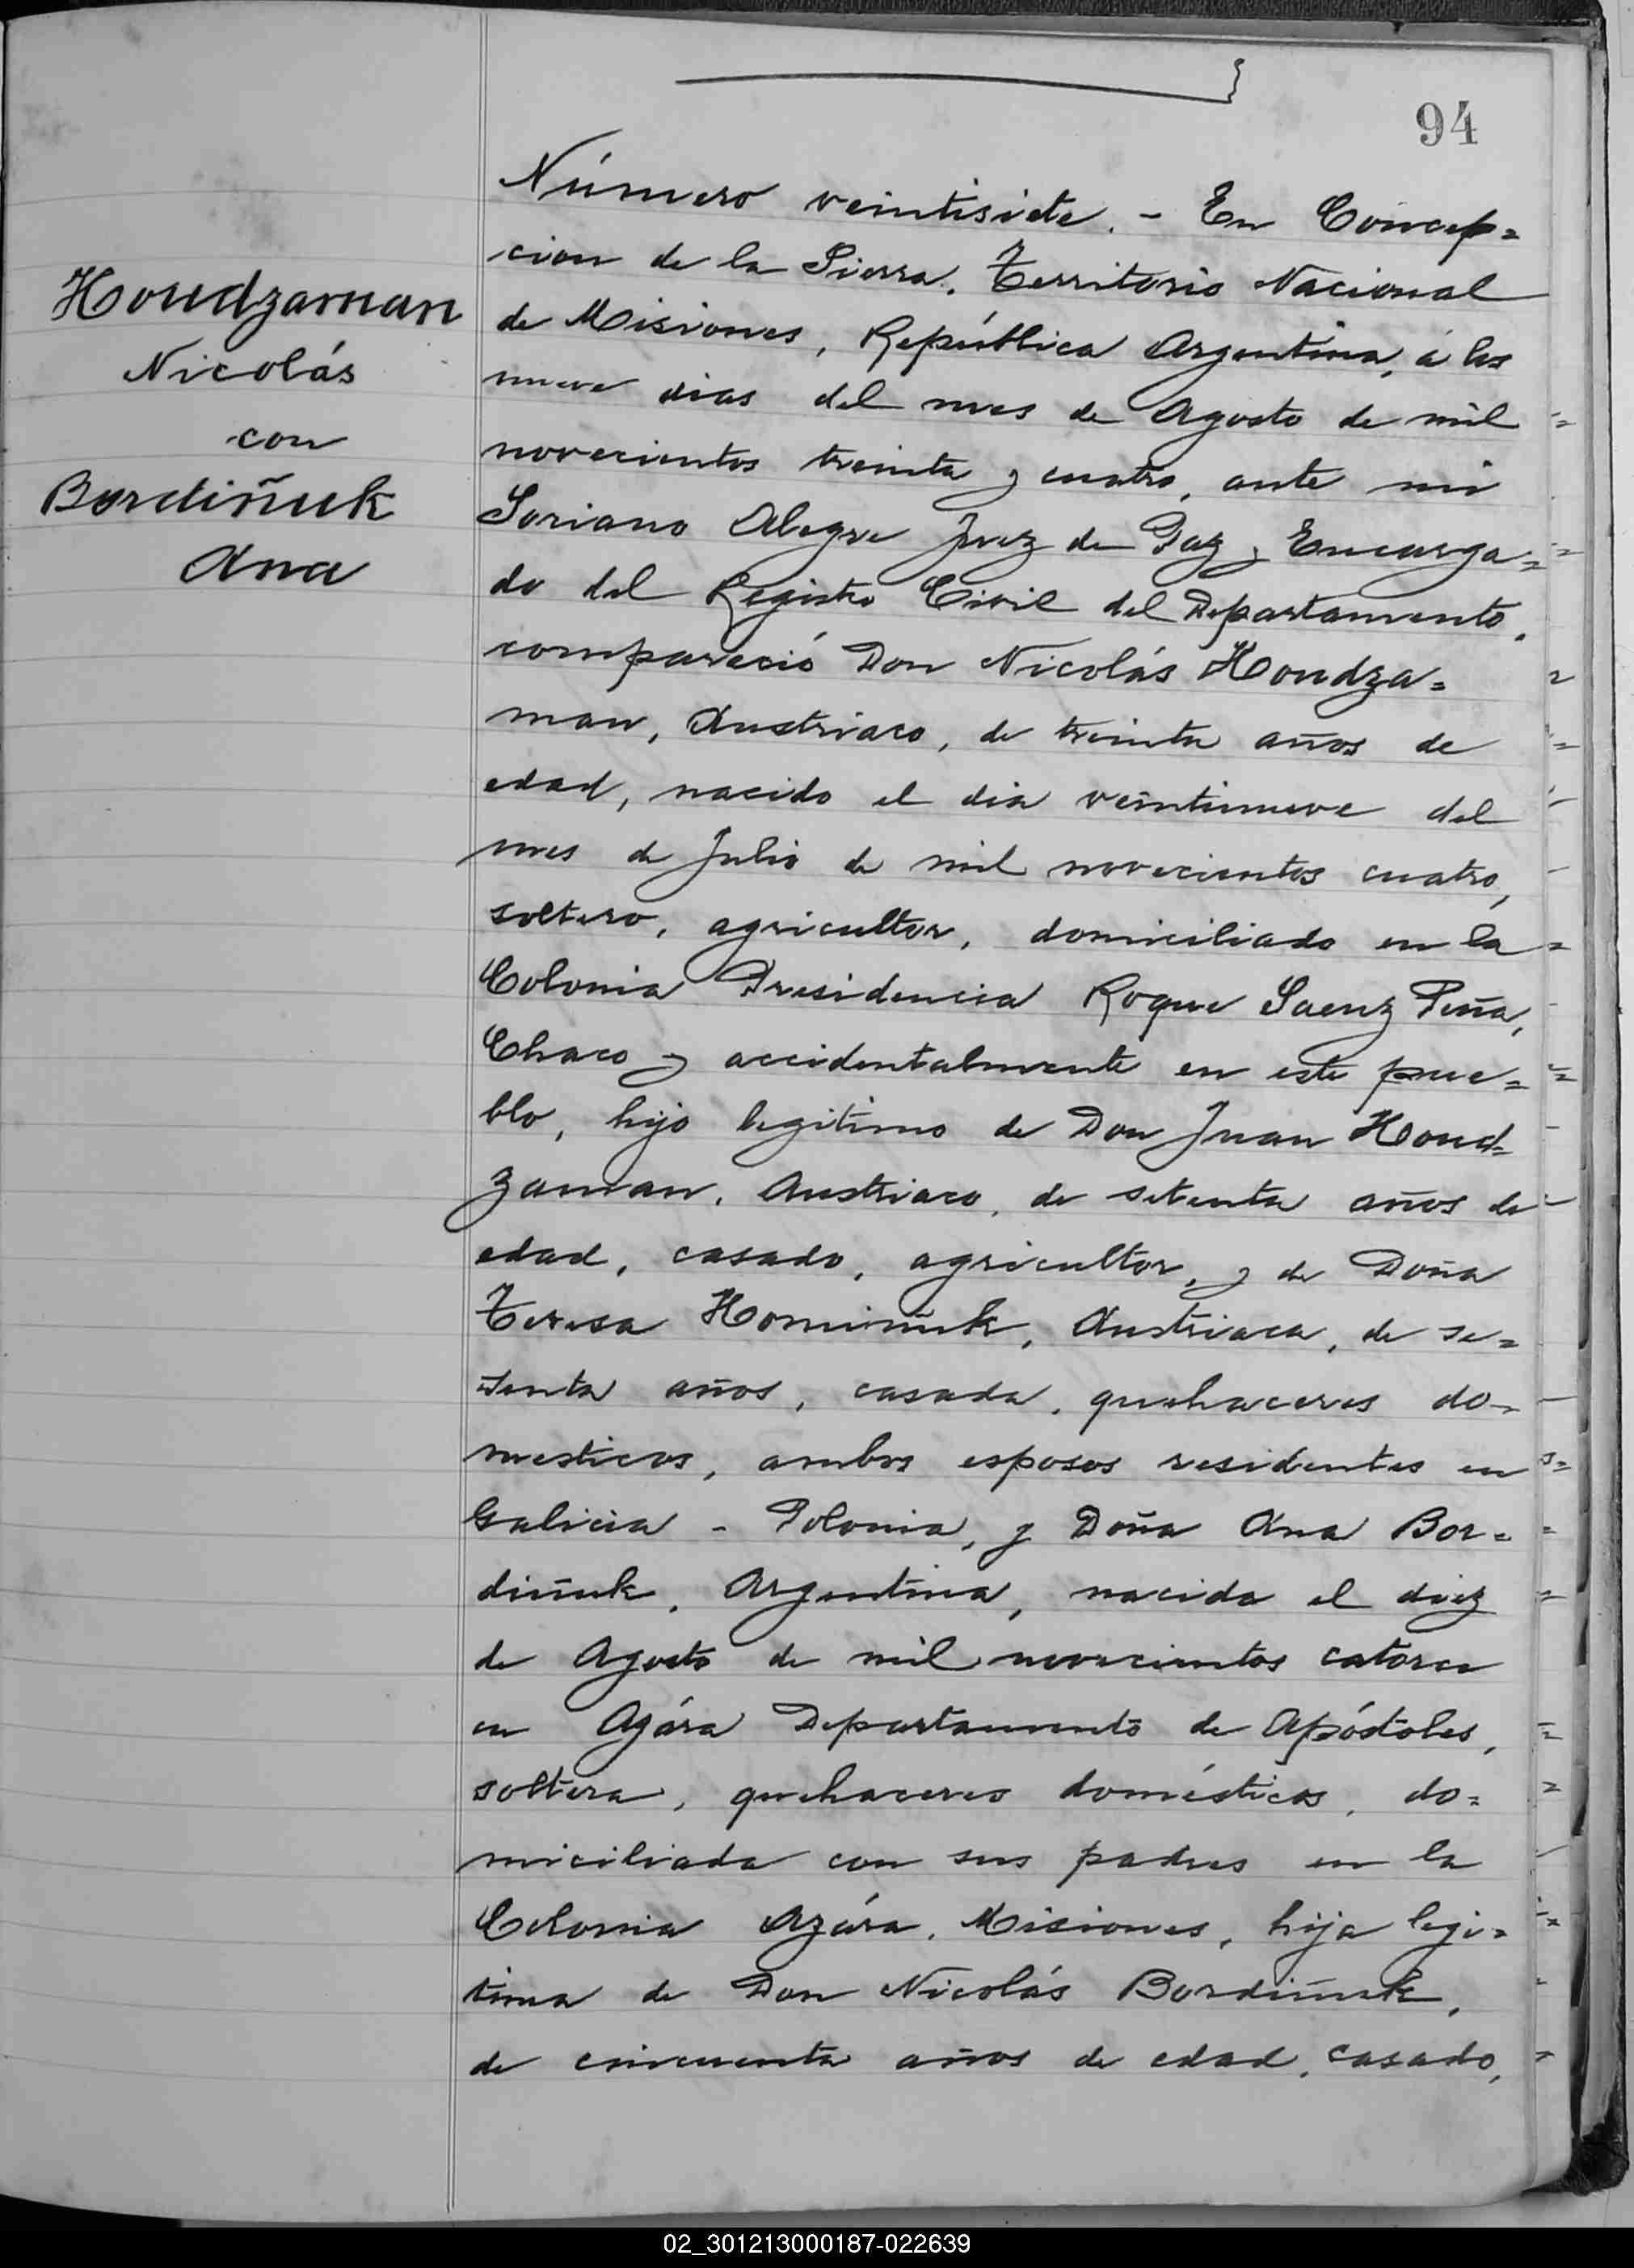 94
Houdzaman
Nicolás
con
Bordiñuk
Ana
Número veintisiete. - En Concep=
cion de la Sierra, Territorio Nacional
de Misiones, República Argentina, á los
nueve dias del mes de Agosto de mil
novecientos treinta y cuatro, ante mi
Soriano Alegre Juez de Paz y Encarga=
do del Registro Civil del Departamento,
compareció Don Nicolás Houdza=
man, Austriaco, de treinta años de
edad, nacido el dia veintinueve del
mes de Julio de mil novecientos cuatro,
soltero, agricultor, domiciliado en la
Colonia Presidencia Roque Saenz Peña,
Chaco y accidentalmente en este pue=
blo, hijo legitimo de Don Juan Houd=
zaman, Austriaco, de setenta años de
edad, casado, agricultor, y de Doña
Teresa Hominiuk, Austriaca, de se=
senta años, casada, quehaceres do=
mesticos, ambos esposos residentes en
Galicia - Polonia, y Doña Ana Bor=
diñuk, Argentina, nacida el diez
de Agosto de mil novecientos catorce
en Azára Departamento de Apóstoles,
soltera, quehaceres domésticos, do=
miciliada con sus padres en la
Colonia Azára, Misiones, hija legi=
tima de Don Nicolás Bordiñuk,
de cincuenta años de edad, casado,
02_301213000187-022639